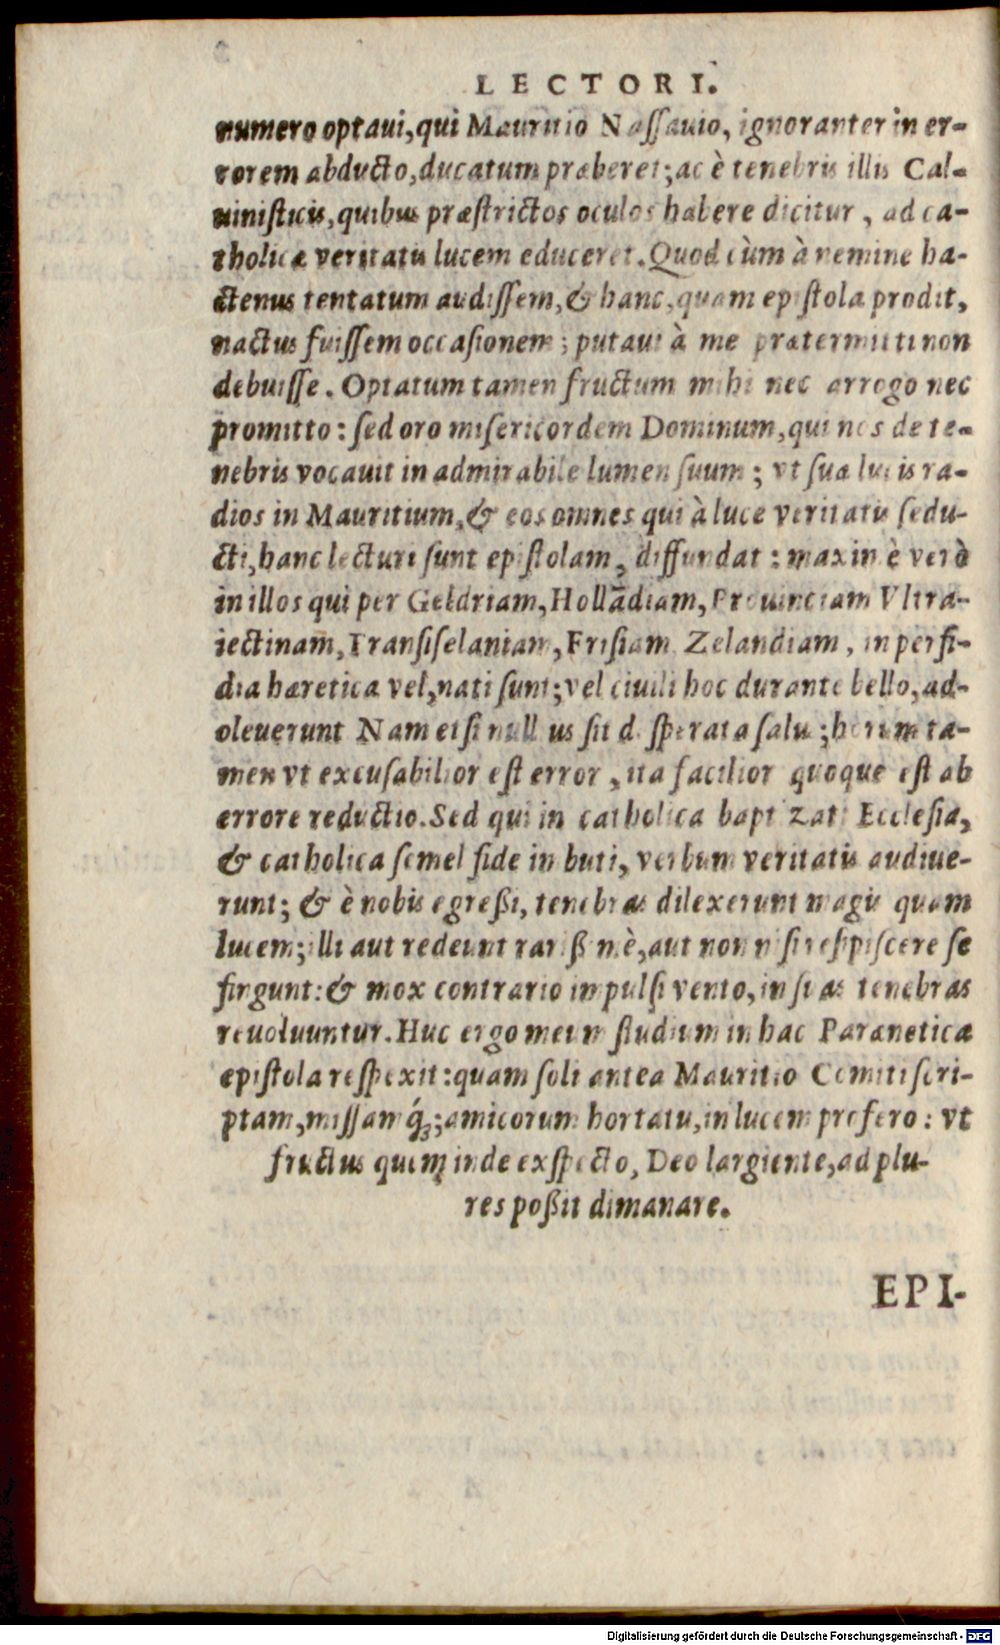 LECTORI.
numero optaui, qui Mauritio Nassauio, ignoranter in er-
rorem abducto, ducatum præberet; ac è tenebris illis Cal-
uinisticis, quibus præstrictos oculos habere dicitur, ad ca-
tholicæ veritatis lucem educeret. Quod cùm à nemine ha-
ctenus tentatum audissem, & hanc, quam epistola prodit,
nactus fuissem occasionem; putaui à me prætermitti non
debuisse. Optatum tamen fructum mihi nec arrogo nec
promitto: sed oro misericordem Dominum, qui nos de te-
nebris vocauit in admirabile lumen suum; vt suæ lucis ra-
dios in Mauritium, & eos omnes qui à luce veritatis sedu-
cti, hanc lecturi sunt epistolam, diffundat: maximè verò
in illos qui per Geldriam, Hollādiam, Prouinciam Vltra-
iectinam, Transiselaniam, Frisiam, Zelandiam, in perfi-
dia hæretica vel, nati sunt; vel ciuili hoc durante bello, ad-
oleuerunt. Nam etsi nullius sit desperata salus; horum ta-
men vt excusabilior est error, ita facilior quoque est ab
errore reductio. Sed qui in catholica baptizati Ecclesia,
& catholica semel fide imbuti, verbum veritatis audiue-
runt; & è nobis egreßi, tenebras dilexerunt magis quam
lucem; illi aut redeunt rarißimè, aut non nisi resipiscere se
fingunt: & mox contrario impulsi vento, in suas tenebras
reuoluuntur. Huc ergo meum studium in hac Parænetica
epistola respexit: quam soli antea Mauritio Comiti scri-
ptam, missamq́ꝫ; amicorum hortatu, in lucem profero: vt
fructus quem inde exspecto, Deo largiente, ad plu-
res poßit dimanare.
EPI-
Digitalisierung gefördert durch die Deutsche Forschungsgemeinschaft - DFG